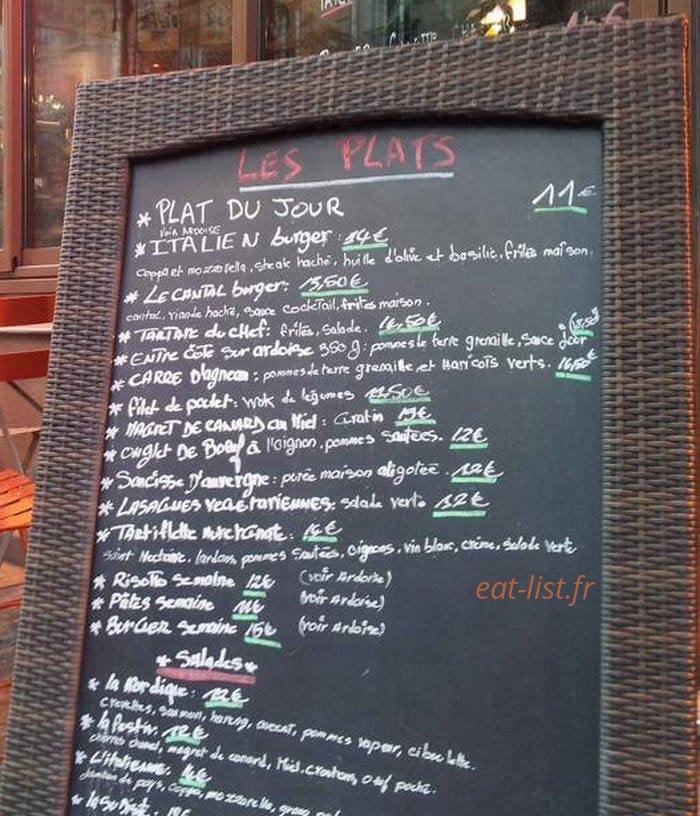 LES PLATS
* PLAT DU JOUR 11€
VOIR ARDOISE
* ITALIEN burger: 14€
Coppa et mozzarella, steak haché, huille d'olive et basilic, frites maison.
* LE CANTAL burger: 13,50€
cantal, viande haché, sauce cocktail, frites maison.
* TARTARE du CHEF: frites, salade. 14,50€
* ENTRE Côte sur ardoise 350 g: pommes de terre grenaille, sauce
* CARRE D'agneau: pommes de terre grenaille et Haricots verts. 16,50€
* filet de poulet: wok de légumes
* MAGRET DE CANARD au Miel: Gratin
* onglet DE Boeuf à l'oignon, pommes sautées. 12€
* Saucisse D'auvergne: purée maison aligotée. 12€
* LASAGNES VEGETARIENNES: salade verte 12€
* Tartiflette
Saint Nectaire, lardons, pommes sautées, oignons, vin blanc, crème, salade verte
* Risotto semaine 12€ (voir Ardoise)
* Pâtes semaine (voir Ardoise)
* BURGER semaine 15€ (voir Ardoise)
* Salades *
* la Nordique: 12€
Crevettes, saumon, hareng, avocat, pommes vapeur, ciboulette.
* la 12€
chèvre chaud, magret de canard, Miel, croutons, oeuf poché.
* L'italienne:
jambon de pays, coppa, mozzarella,
eat-list.fr